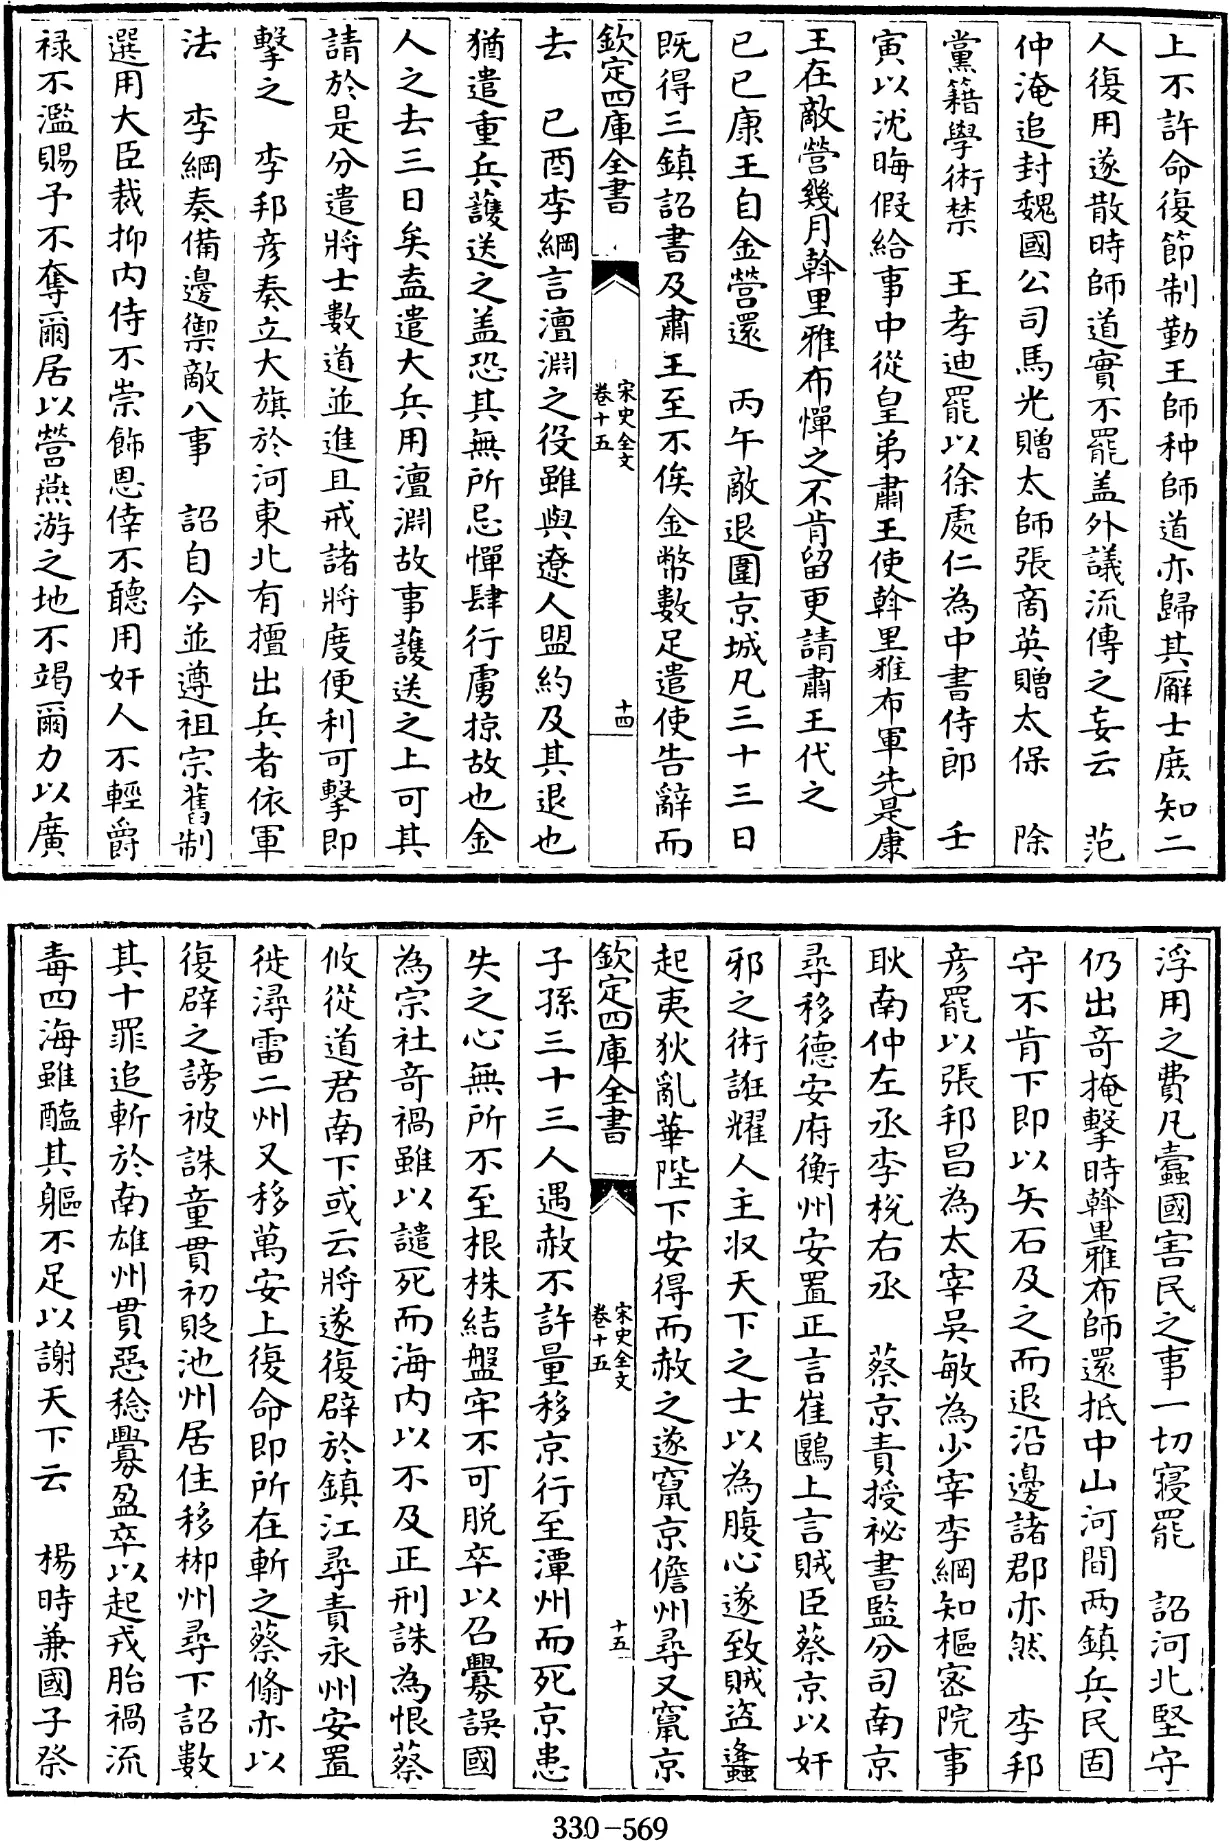 上不許命復節制勤王師种師道亦歸其廨士庶知二
人復用遂散時師道實不罷盖外議流傳之妄云　范
仲淹追封魏國公司馬光贈太師張商英贈太保　除
黨籍學術禁　王孝迪罷以徐處仁為中書侍郎　壬
寅以沈晦假給事中從皇弟肅王使斡里雅布軍先是康
王在敵營幾月斡里雅布憚之不肯留更請肅王代之
已巳康王自金營還　丙午敵退圍京城凡三十三日
既得三鎮詔書及肅王至不俟金幣數足遣使告辭而
欽定四庫全書
宋史全文
卷十五
十四
去　已酉李綱言澶淵之役雖與遼人盟約及其退也
猶遣重兵護送之盖恐其無所忌憚肆行虜掠故也金
人之去三日矣盍遣大兵用澶淵故事護送之上可其
請於是分遣將士數道並進且戒諸將度便利可擊即
擊之　李邦彦奏立大旗於河東北有擅出兵者依軍
法　李綱奏備邊禦敵八事　詔自今並遵祖宗舊制
選用大臣裁抑内侍不崇飾恩倖不聽用奸人不輕爵
禄不濫賜予不奪爾居以營燕游之地不竭爾力以廣
浮用之費凡蠹國害民之事一切寢罷　詔河北堅守
仍出奇掩擊時斡里雅布師還抵中山河間两鎮兵民固
守不肯下即以矢石及之而退沿邊諸郡亦然　李邦
彦罷以張邦昌為太宰吳敏為少宰李綱知樞宻院事
耿南仲左丞李梲右丞　蔡京責授祕書監分司南京
尋移德安府衡州安置正言崔鶠上言賊臣蔡京以奸
邪之術誑耀人主収天下之士以為腹心遂致賊盗蠭
起夷狄亂華陛下安得而赦之遂竄京儋州尋又竄京
欽定四庫全書
宋史全文
卷十五
十五
子孫三十三人遇赦不許量移京行至潭州而死京患
失之心無所不至根株結盤牢不可脱卒以召釁誤國
為宗社奇禍雖以譴死而海内以不及正刑誅為恨蔡
攸從道君南下或云將遂復辟於鎮江尋責永州安置
徙潯雷二州又移萬安上復命即所在斬之蔡翛亦以
復辟之謗被誅童貫初貶池州居住移郴州尋下詔數
其十罪追斬於南雄州貫惡稔釁盈卒以起戎胎禍流
毒四海雖醢其軀不足以謝天下云　楊時兼國子祭
330-569